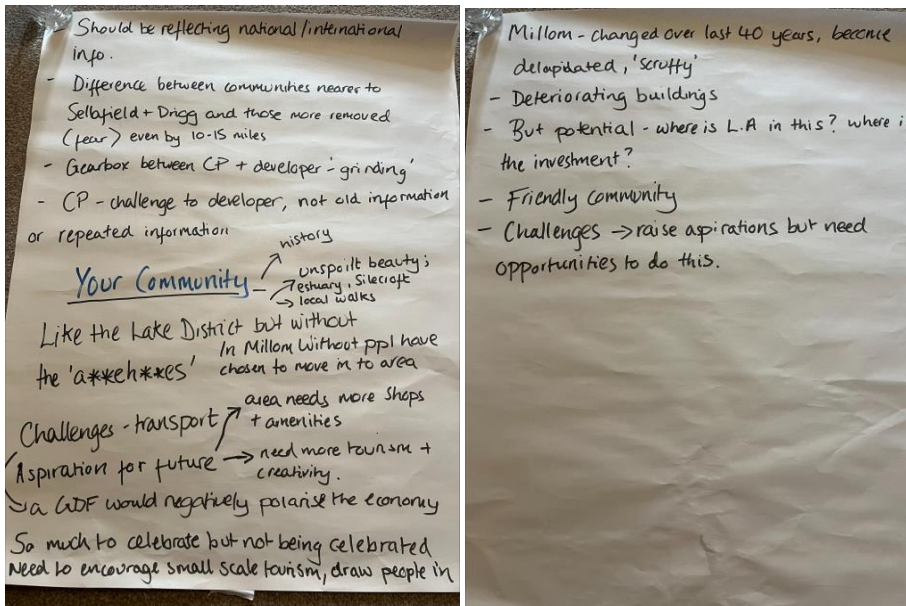 - Should be reflecting national/international
info.
- Difference between communities nearer to
Sellafield + Drigg and those more removed
(fear) even by 10-15 miles
- Gearbox between CP + developer - 'grinding'
- CP - challenge to developer, not old information
or repeated information
Your Community
→ history
→ unspoilt beauty;
estuary, Silecroft
→ local walks
Like the Lake District but without
the 'a**eh**es'
In Millom Without ppl have
chosen to move in to area
Challenges - transport
Aspiration for future
→ area needs more shops
+ amenities
→ need more tourism +
creativity.
→ a GDF would negatively polarise the economy
So much to celebrate but not being celebrated
Need to encourage small scale tourism, draw people in
Millom - changed over last 40 years, become
delapidated, 'scruffy'
- Deteriorating buildings
- But potential - where is L.A in this? where i
the investment?
- Friendly community
- Challenges → raise aspirations but need
opportunities to do this.